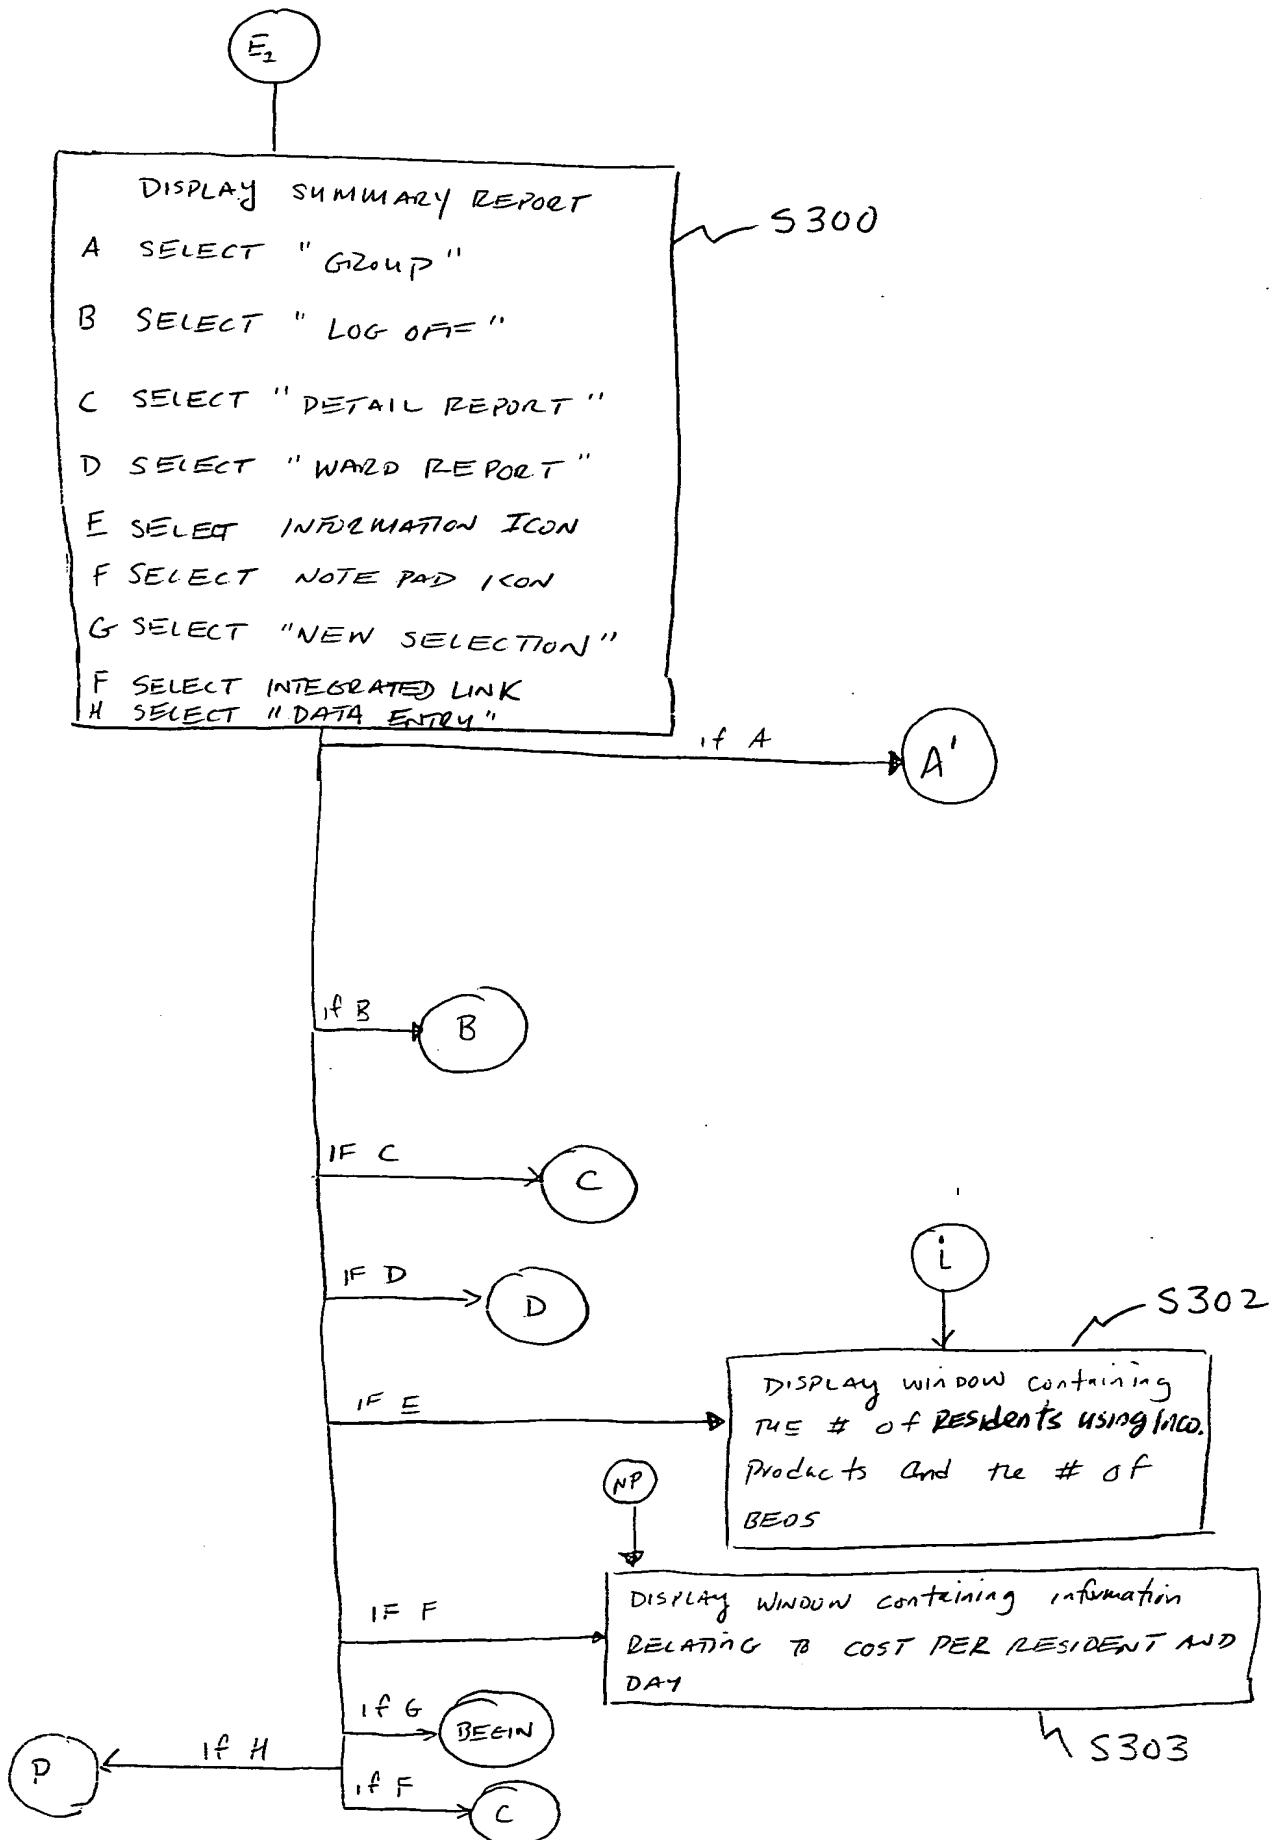 E1
DISPLAY SUMMARY REPORT
S300
A SELECT "GROUP"
B SELECT "LOG OFF"
C SELECT "DETAIL REPORT"
D SELECT "WARD REPORT"
E SELECT INFORMATION ICON
F SELECT NOTE PAD ICON
G SELECT "NEW SELECTION"
F SELECT INTEGRATED LINK
H SELECT "DATA ENTRY"
if A
A'
if B
B
IF C
C
IF D
D
i
S302
IF E
DISPLAY WINDOW containing
THE # of RESIdents using Inco.
Products and the # of
BEDS
NP
IF F
DISPLAY WINDOW containing information
RELATING TO COST PER RESIDENT AND
DAY
S303
if G
BEGIN
if H
P
if F
C